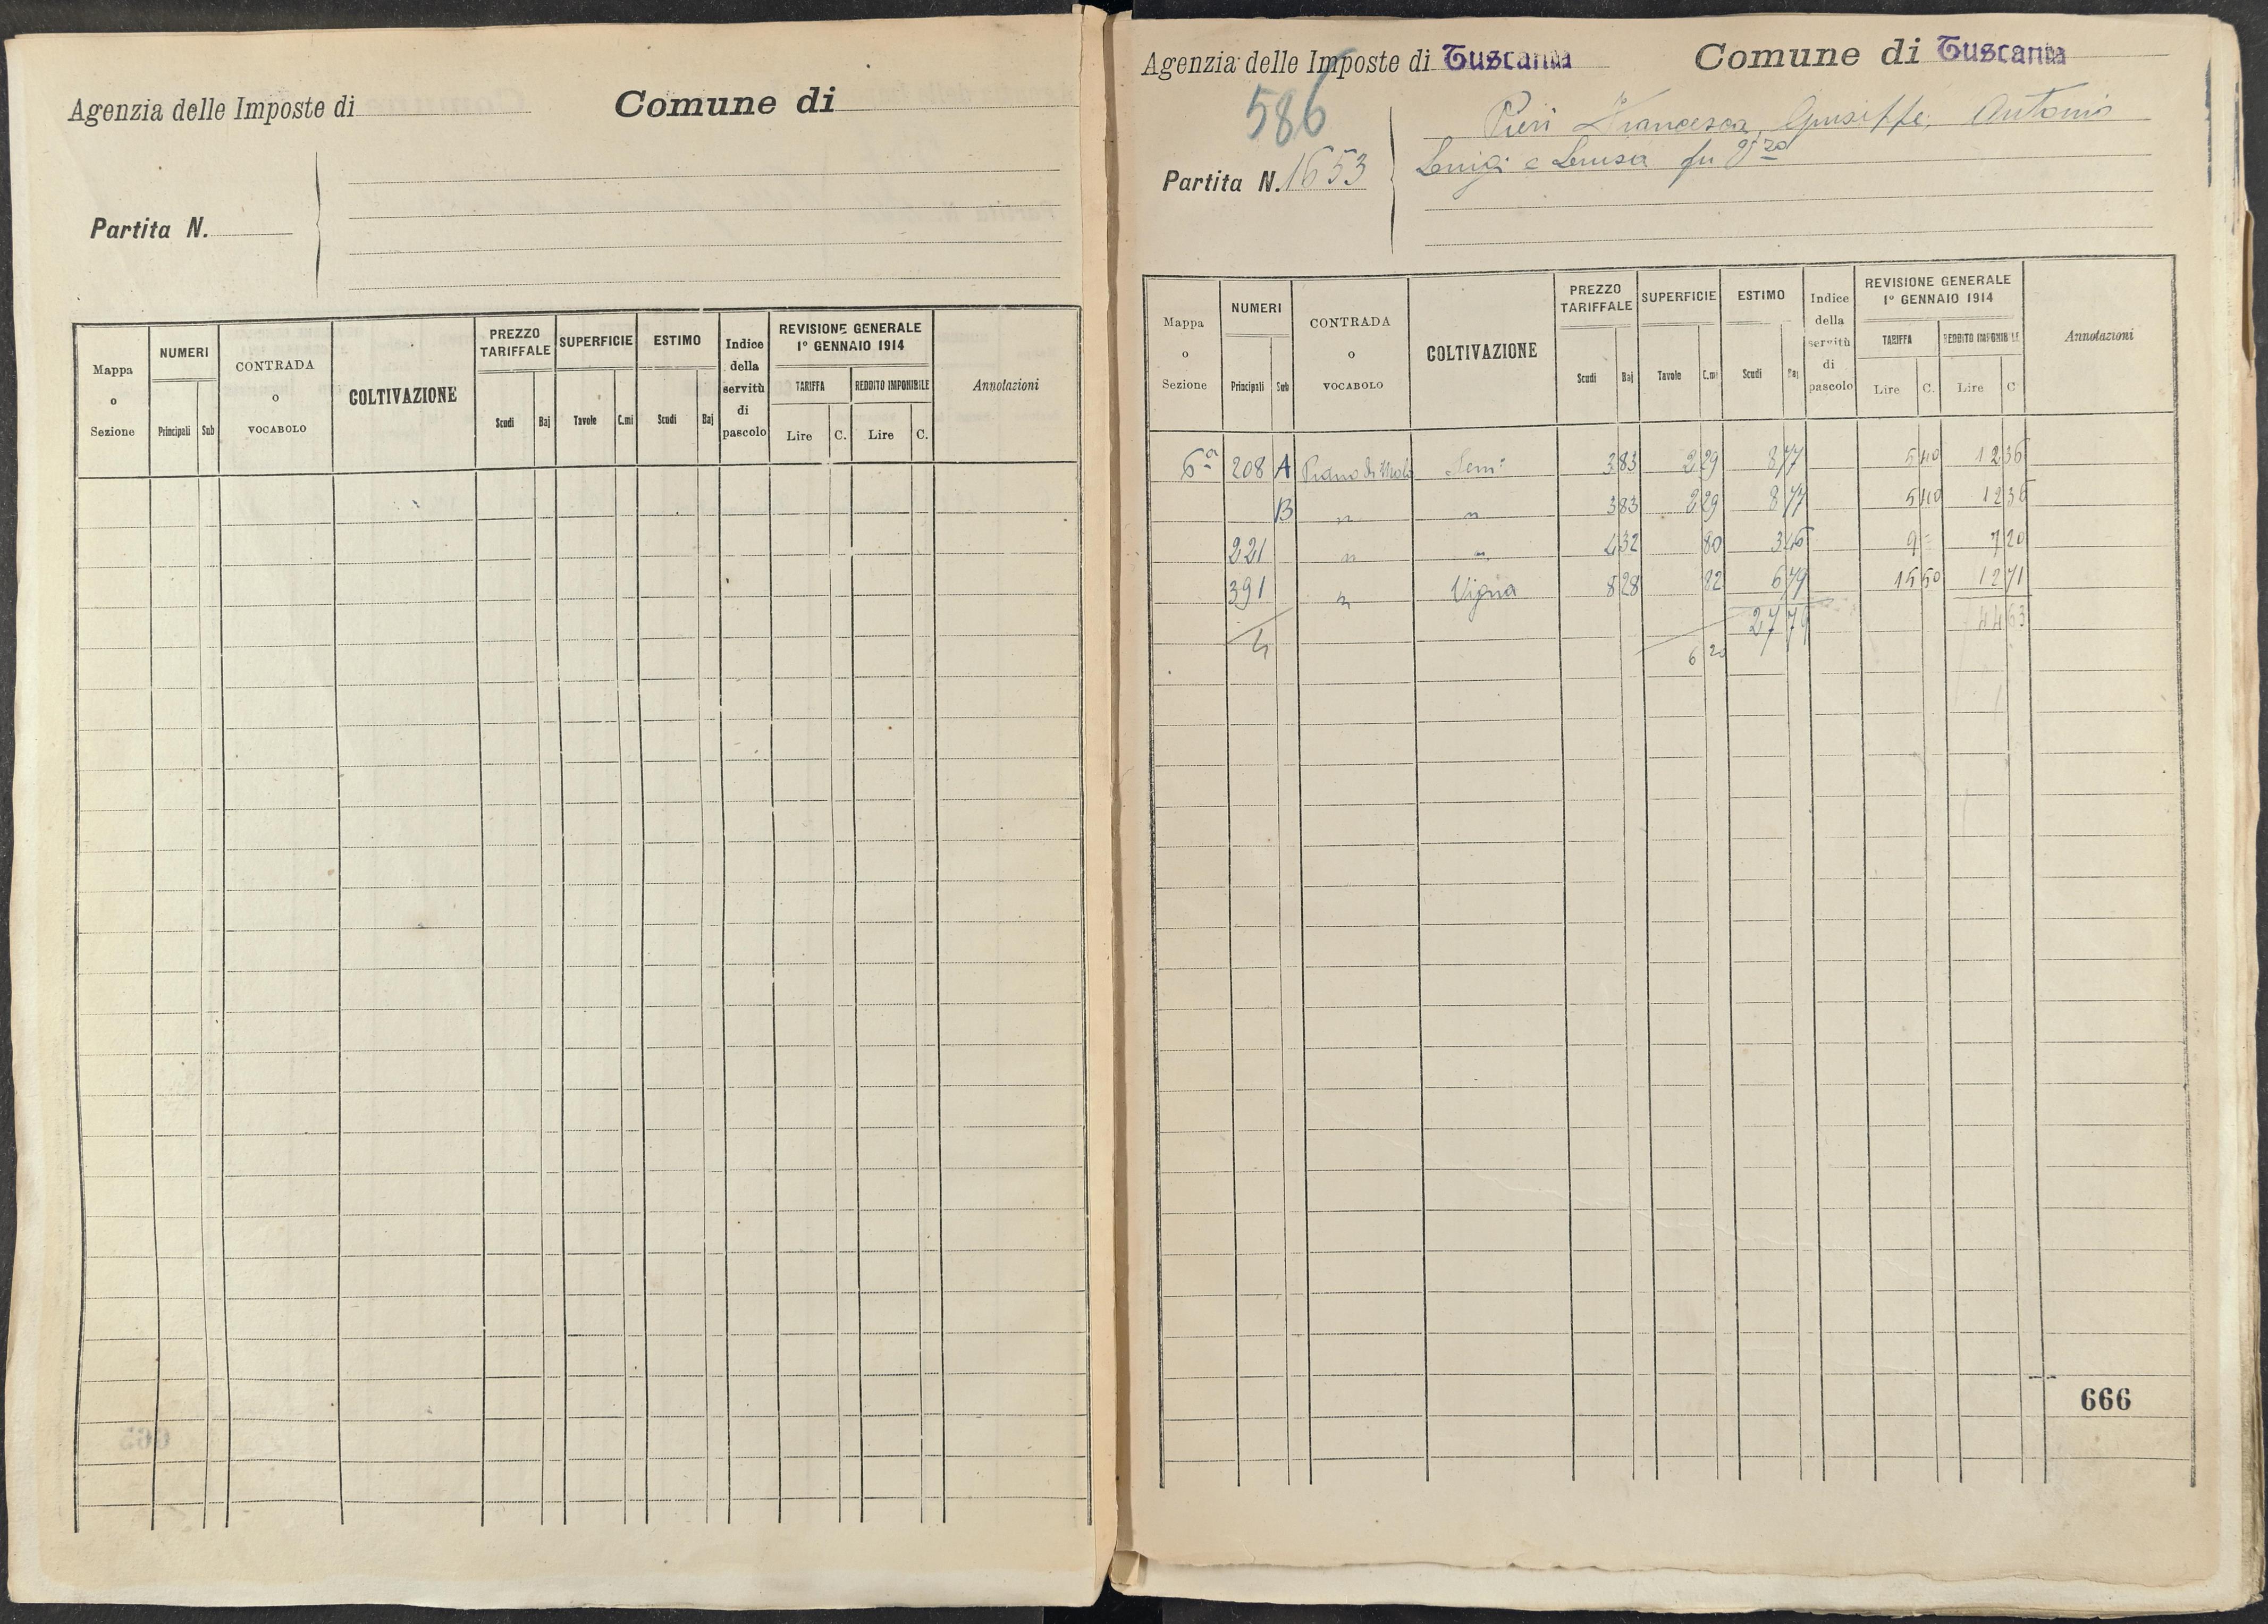 Agenzia delle Imposte di
Comune di
Partita N.
Mappa o Sezione
NUMERI
Principali Sub
CONTRADA o VOCABOLO
COLTIVAZIONE
PREZZO TARIFFALE
Scudi Baj
SUPERFICIE
Tavole C.mi
ESTIMO
Scudi Baj
Indice della servitù di pascolo
REVISIONE GENERALE
1° GENNAIO 1914
TARIFFA
REDDITO IMPONIBILE
Lire C. Lire C.
Annotazioni
Agenzia delle Imposte di Tuscania
Comune di Tuscania
586
Partita N. 1653
Pieri Francesca, Giuseppe, Antonio
Luigi e Luisa fu
Mappa o Sezione
NUMERI
Principali Sub
CONTRADA o VOCABOLO
COLTIVAZIONE
PREZZO TARIFFALE
Scudi Baj
SUPERFICIE
Tavole C.mi
ESTIMO
Scudi Baj
Indice della servitù di pascolo
REVISIONE GENERALE
1° GENNAIO 1914
TARIFFA
REDDITO IMPONIBILE
Lire C. Lire C
Annotazioni
6ª 208 A Piano di Mola Sem: 3 83 2 29 8 77 5 40 12 36
B " " 3 83 2 29 8 77 5 40 12 36
221 " " 4 32 80 3 46 9 = 7 20
391 " Vigna 8 28 82 6 79 15 50 12 71
27 79 44 63
4 6 20
666